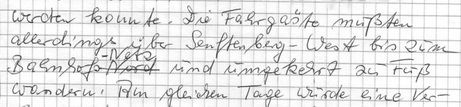 werden konnte. Die Fahrgäste mußten
allerdings über Senftenberg-West bis zum
Bahnhof und umgekehrt zu Fuß
wandern. Am gleichen Tage wurde eine Ver-